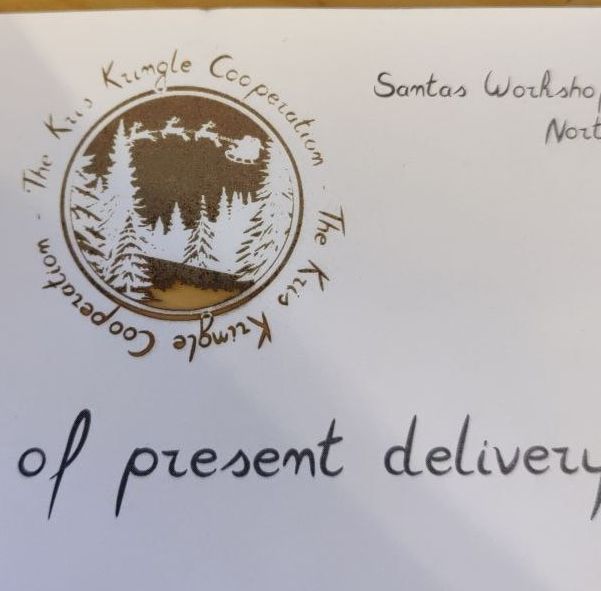 The Kris Kringle Cooperation - The Kris Kringle Cooperation -
Santas Workshop
Nort
of present delivery